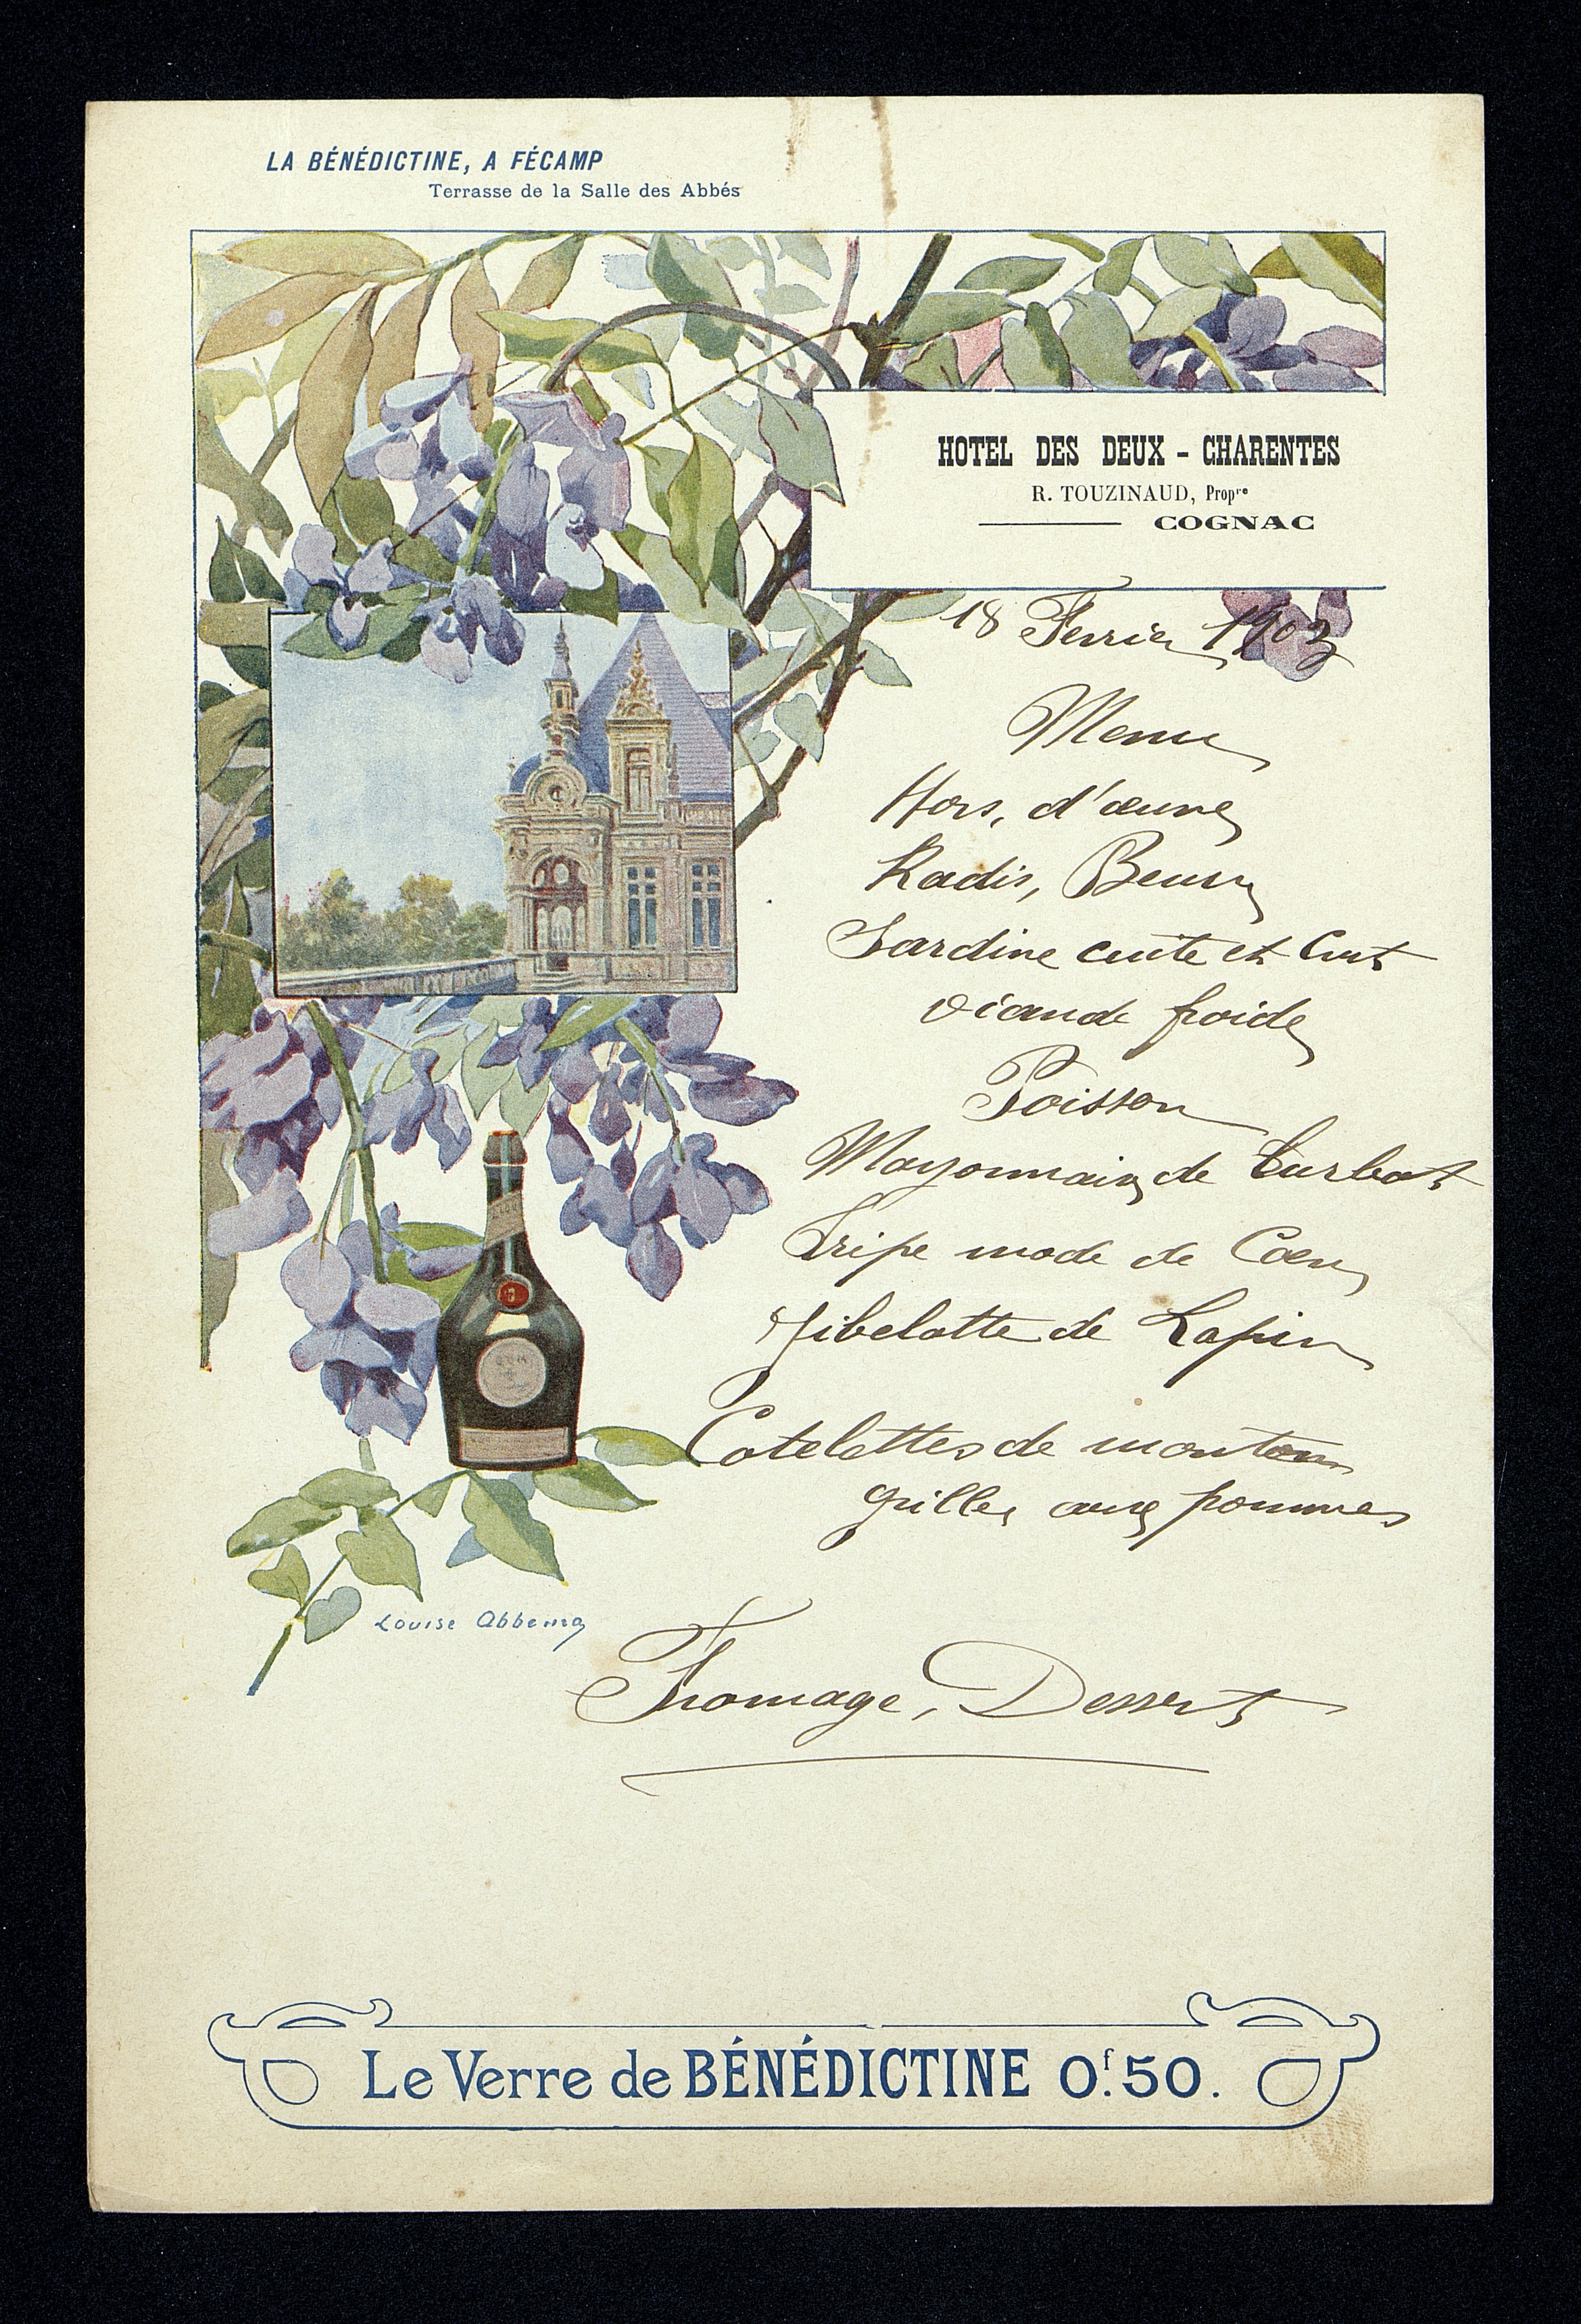 LA BÉNÉDICTINE, A FÉCAMP
Terrasse de la Salle des Abbés
HOTEL DES DEUX - CHARENTES
R. TOUZINAUD, Propre
COGNAC
18 Fevrier 1903
Menu
Hors, d'œuvre
Radis, Beurre
Sardine cuite et
viande froide
Poisson
Mayonnaise de turbot
Tripe mode de Caen
Gibelotte de Lapin
Cotelettes de mouton
grilles aux pommes
Louise Abbema
Fromage, Dessert
Le Verre de BÉNÉDICTINE 0f.50.